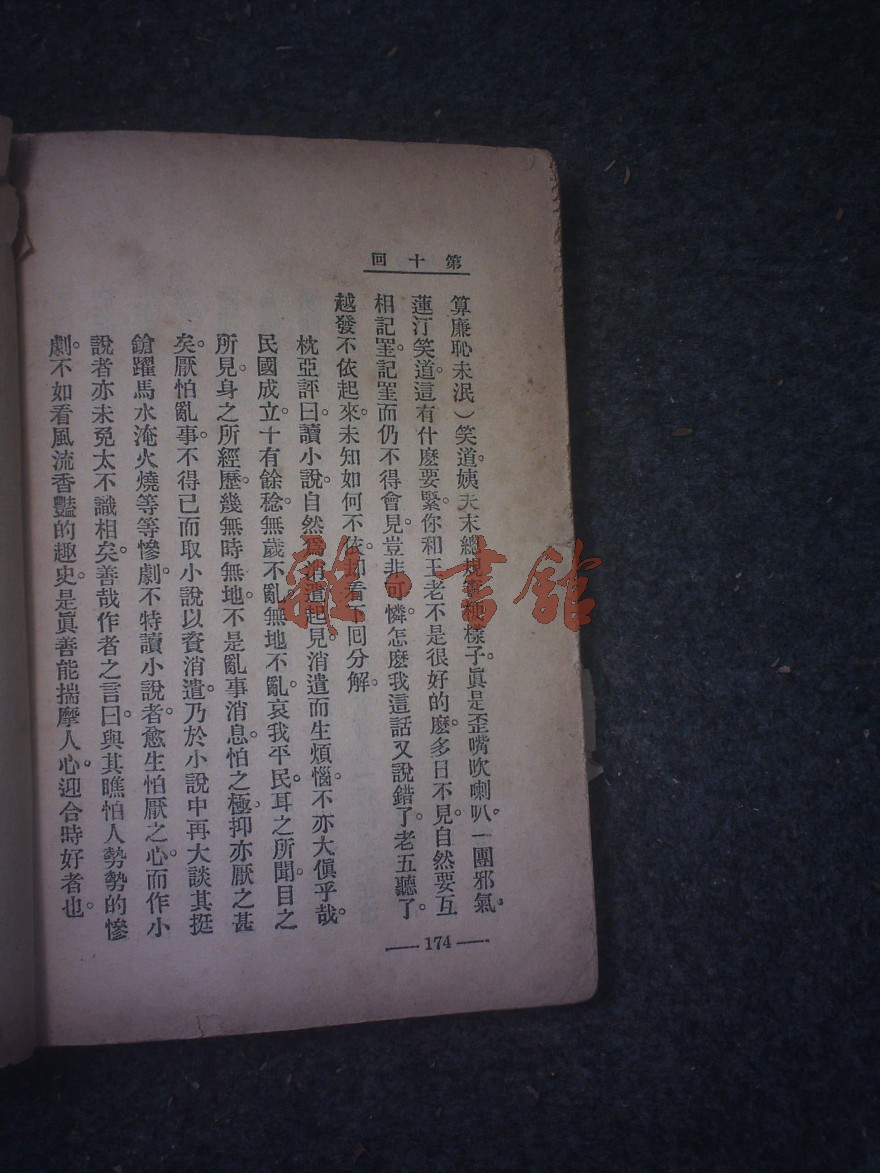 第十回
算廉恥未泯）笑道姨夫末總規這樣子眞是歪嘴吹喇叭一團邪氣。
蓮汀笑道這有什麽要緊。你和王老不是很好的麽。多日不見。自然要互
相記罣。記罣而仍不得會見。豈非可憐。怎麽我這話又說錯了。老五聽了。
越發不依起來。未知如何不依。却看下回分解。
枕亞評曰。讀小說。自然爲消遣起見。消遣而生煩惱。不亦大傎乎哉。
民國成立。十有餘稔。無歲不亂。無地不亂。哀我平民。耳之所聞。目之
所見。身之所經歷。幾無時無地。不是亂事消息。怕之極。抑亦厭之甚
矣。厭怕亂事。不得已而取小說以資消遣。乃於小說中再大談其挺
鎗躍馬水淹火燒等等慘劇。不特讀小說者。愈生怕厭之心。而作小
說者。亦未免太不識相矣。善哉作者之言曰。與其瞧怕人勢勢的慘
劇。不如看風流香豔的趣史。是眞善能揣摩人心。迎合時好者也。
174
雜·書館